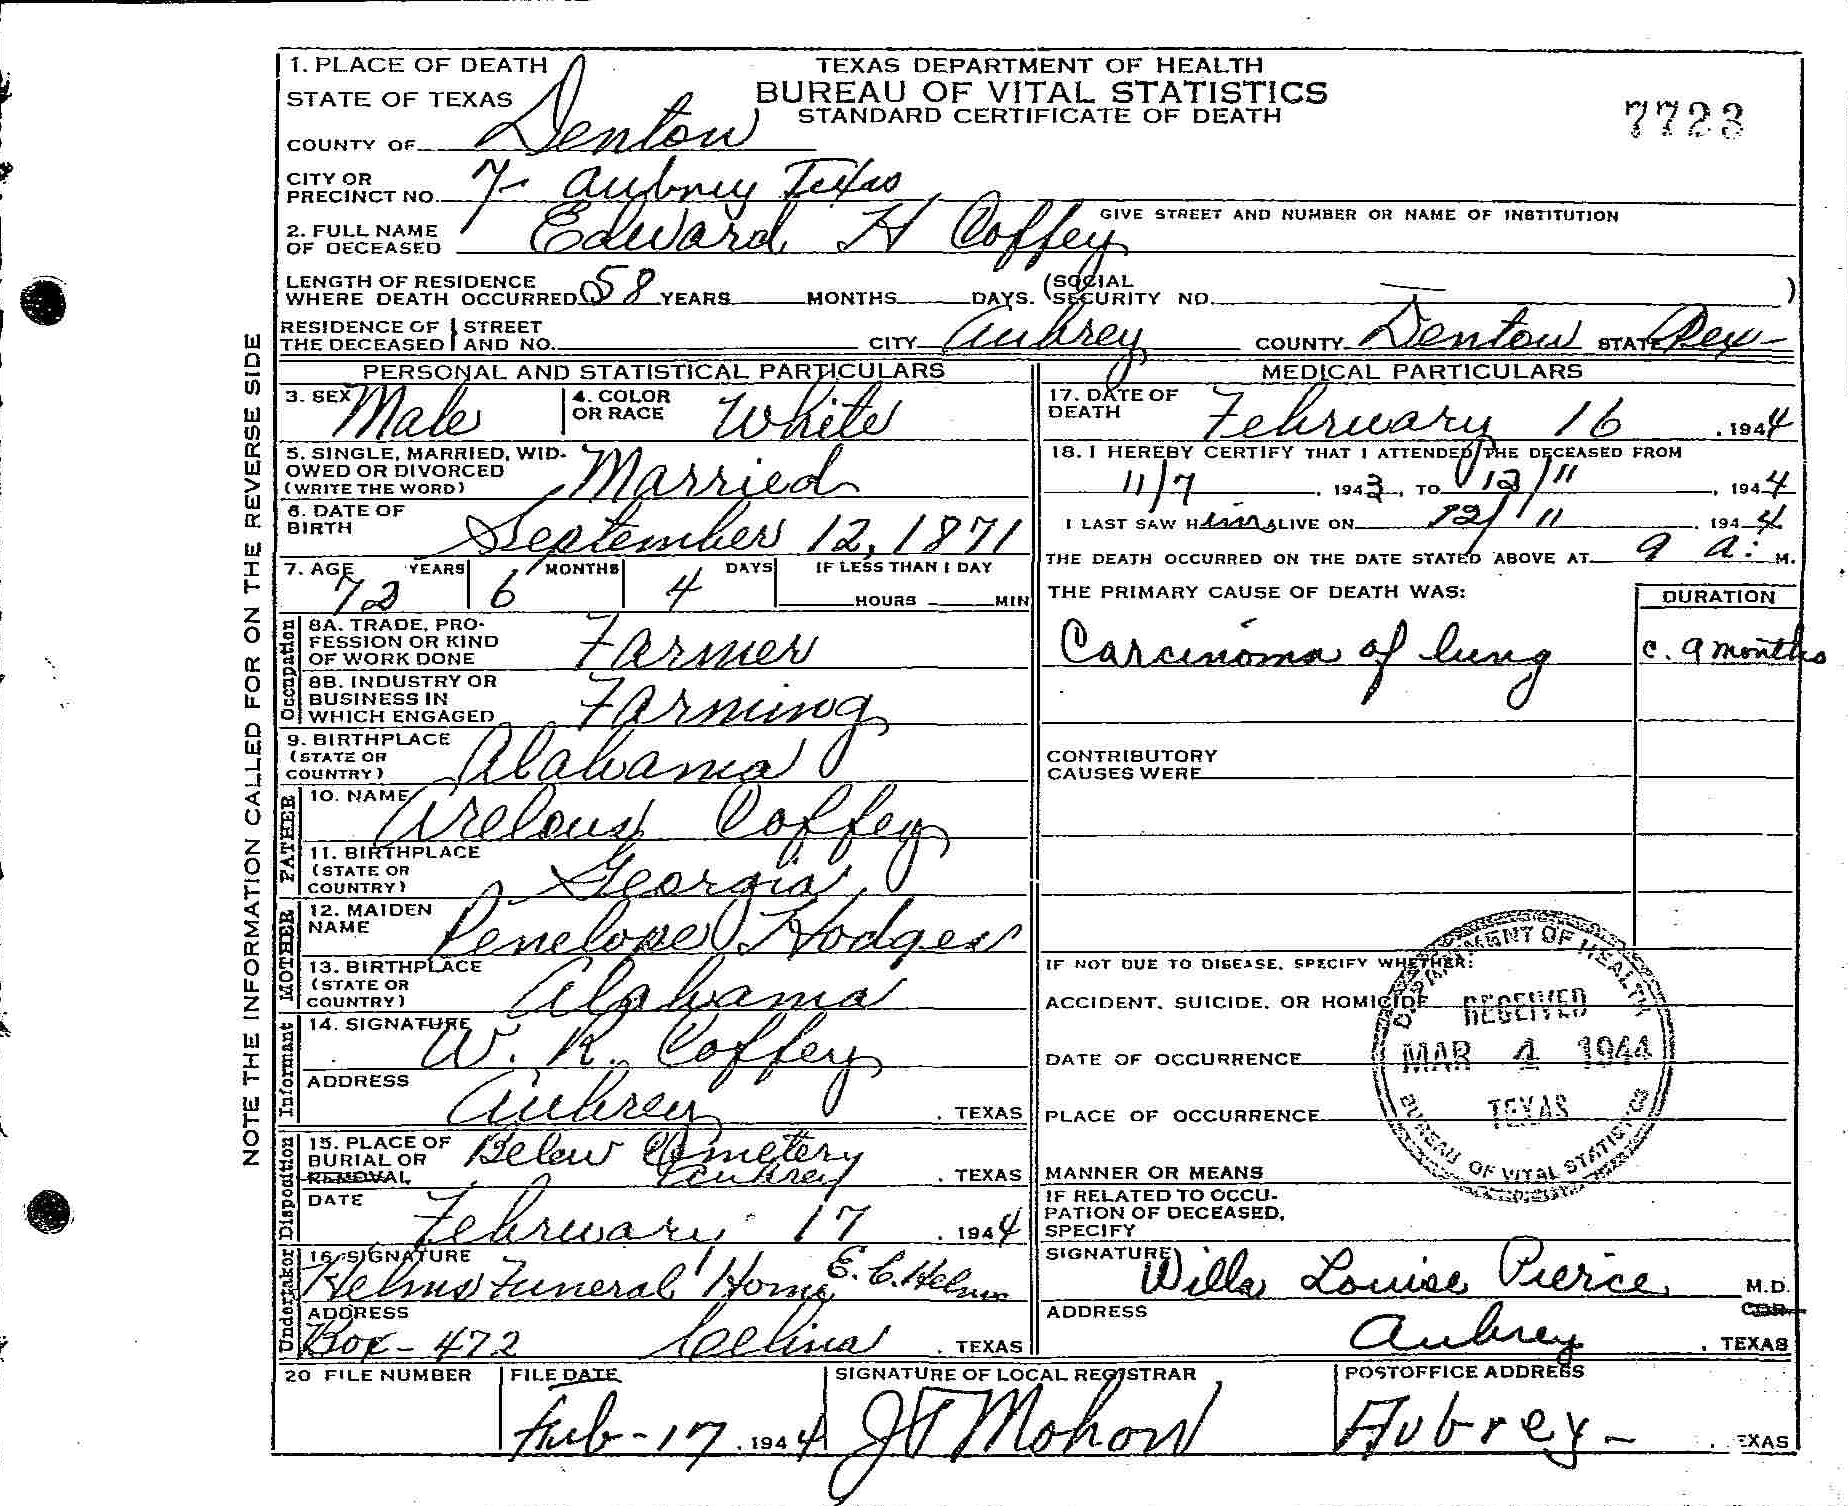 1. PLACE OF DEATH
STATE OF TEXAS
TEXAS DEPARTMENT OF HEALTH
BUREAU OF VITAL STATISTICS
STANDARD CERTIFICATE OF DEATH
7723
COUNTY OF Denton
CITY OR PRECINCT NO. 7- Aubrey Texas
GIVE STREET AND NUMBER OR NAME OF INSTITUTION
2. FULL NAME OF DECEASED Edward H Coffey
LENGTH OF RESIDENCE WHERE DEATH OCCURRED 58 YEARS MONTHS DAYS. (SOCIAL SECURITY NO. — )
RESIDENCE OF THE DECEASED STREET AND NO. CITY Aubrey COUNTY Denton STATE Tex-
NOTE THE INFORMATION CALLED FOR ON THE REVERSE SIDE
PERSONAL AND STATISTICAL PARTICULARS
3. SEX Male 4. COLOR OR RACE White
5. SINGLE, MARRIED, WIDOWED OR DIVORCED (WRITE THE WORD) Married
6. DATE OF BIRTH September 12, 1871
7. AGE YEARS 72 MONTHS 6 DAYS 4 IF LESS THAN 1 DAY HOURS MIN
Occupation
8A. TRADE, PROFESSION OR KIND OF WORK DONE Farmer
8B. INDUSTRY OR BUSINESS IN WHICH ENGAGED Farming
9. BIRTHPLACE (STATE OR COUNTRY) Alabama
FATHER
10. NAME Arelous Coffey
11. BIRTHPLACE (STATE OR COUNTRY) Georgia
MOTHER
12. MAIDEN NAME Penelope Hodges
13. BIRTHPLACE (STATE OR COUNTRY) Alabama
Informant
14. SIGNATURE W. R. Coffey
ADDRESS Aubrey, TEXAS
Disposition
15. PLACE OF BURIAL OR REMOVAL Belew Cemetery
Aubrey, TEXAS
DATE February 17, 1944
Undertaker
16. SIGNATURE Helms Funeral Home E. C. Helms
ADDRESS Box-472 Celina, TEXAS
MEDICAL PARTICULARS
17. DATE OF DEATH February 16, 1944
18. I HEREBY CERTIFY THAT I ATTENDED THE DECEASED FROM
11/7, 1943, TO 12/11, 1944
I LAST SAW HIM ALIVE ON 12/11, 1944
THE DEATH OCCURRED ON THE DATE STATED ABOVE AT 9 a. M.
THE PRIMARY CAUSE OF DEATH WAS: DURATION
Carcinoma of lung c. 9 months
CONTRIBUTORY CAUSES WERE
IF NOT DUE TO DISEASE, SPECIFY WHETHER:
ACCIDENT, SUICIDE, OR HOMICIDE
DATE OF OCCURRENCE
PLACE OF OCCURRENCE
MANNER OR MEANS
IF RELATED TO OCCUPATION OF DECEASED, SPECIFY
DEPARTMENT OF HEALTH
RECEIVED
MAR 4 1944
TEXAS
BUREAU OF VITAL STATISTICS
SIGNATURE Willa Louise Pierce M.D.
ADDRESS Aubrey, TEXAS
20 FILE NUMBER
FILE DATE Feb-17, 1944
SIGNATURE OF LOCAL REGISTRAR J T Mohon
POSTOFFICE ADDRESS Aubrey-, EXAS